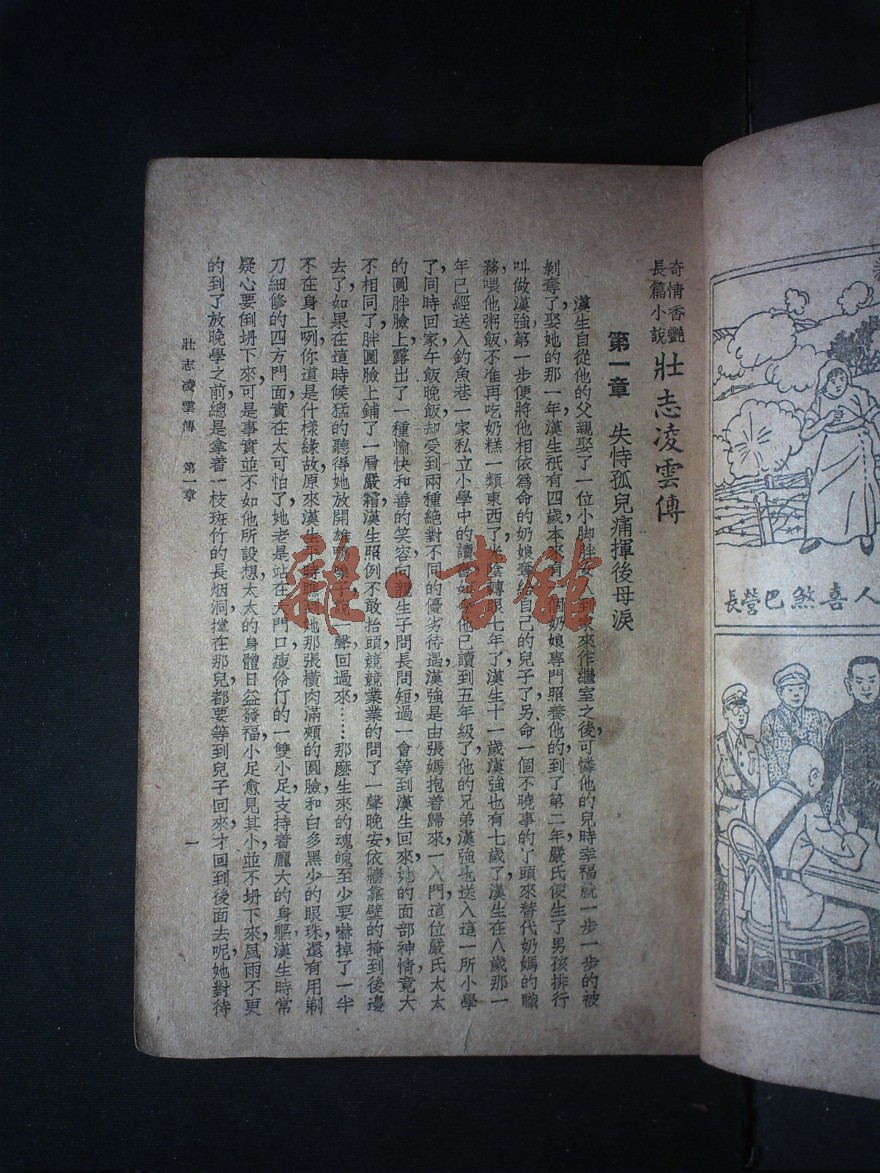 奇情香艷
長篇小說
壯志凌雲傳
第一章　失恃孤兒痛揮後母淚
漢生自從他的父親娶了一位小脚姓到來作繼室之後,可憐他的兒時幸福就一步一步的被
剝奪了娶她的那一年漢生祇有四歲本來有一個奶娘專門照養他的到了第二年嚴氏便生了男孩排行
叫做漢強第一步便將他相依為命的奶娘奪給自己的兒子了另命一個不曉事的丫頭來替代奶媽的職
務,喂他粥飯不准再吃奶糕一類東西了光陰轉眼七年了,漢生十一歲漢強也有七歲了漢生在八歲那一
年已經送入釣魚巷一家私立小學中的讀書如今他已讀到五年級了他的兄弟漢強也送入這一所小學
了,同時回家午飯晚飯却受到兩種絶對不同的優劣待遇漢強是由張媽抱着歸來一入門這位嚴氏太太
的圓胖臉上露出了一種愉快和善的笑容向親生子問長問短過一會等到漢生回來,她的面部神情竟大
不相同了胖圓臉上鋪了一層嚴霜漢生照例不敢抬頭,兢兢業業的問了一聲晚安依牆靠壁的掩到後邊
去了,如果在這時候猛的聽得她放開雄鴨嗓子說一聲回過來……那麼生來的魂魄至少要嚇掉了一半
不在身上咧你道是什樣緣故原來漢生不時瞧到她那張橫肉滿頰的圓臉和白多黑少的眼珠還有用剃
刀細修的四方門面實在太可怕了,她老是站在大門口瘦伶仃的一雙小足支持着龐大的身軀,漢生時常
疑心要倒坍下來,可是事實並不如他所設想太太的身體日益發福小足愈見其小,並不坍下來,風雨不更
的到了放晚學之前,總是拿着一枝斑竹的長烟洞,擋在那兒都要等到兒子回來,才回到後面去呢,她對待
壯志凌雲傳　第一章
一
人喜煞巴營長
雜·書館